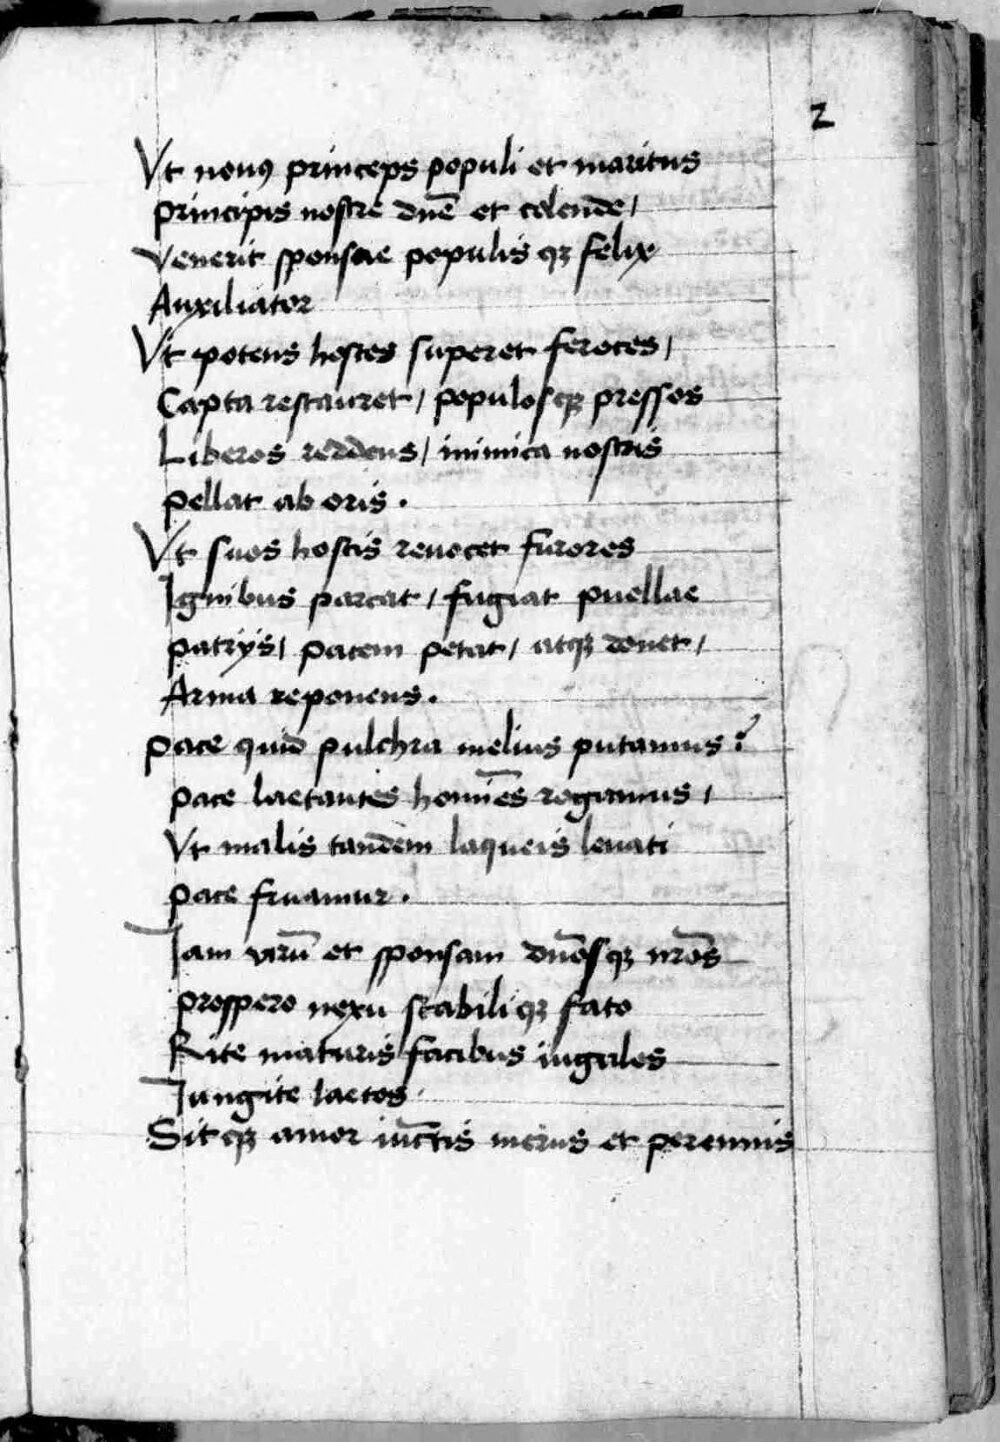 2
Vt nouꝰ princeps populi et maritus
Principis nostrę dn̄ę et colendę /
Venerit sponsae populis qꝫ felix
Auxiliator
Vt potens hostes superet feroces /
Capta restauret / populosqꝫ pressos
Liberos reddens / inimica nostris
Pellat ab oris .
Vt suos hostis reuocet furores
Ignibus parcat / fugiat puellae
Patrijs / pacem petat / atqꝫ donet /
Arma reponens .
Pace quid pulchra melius putamus ?
Pace laetantes homīes rogamus /
Vt malis tandem laqueis leuati
Pace fruamur .
Iam virū et sponsam dn̄osqꝫ nr̄os
Prospero nexu stabili qꝫ fato
Rite maturis facibus iugales
Iungite laetos .
Sit qꝫ amor iūctis merus et perennis